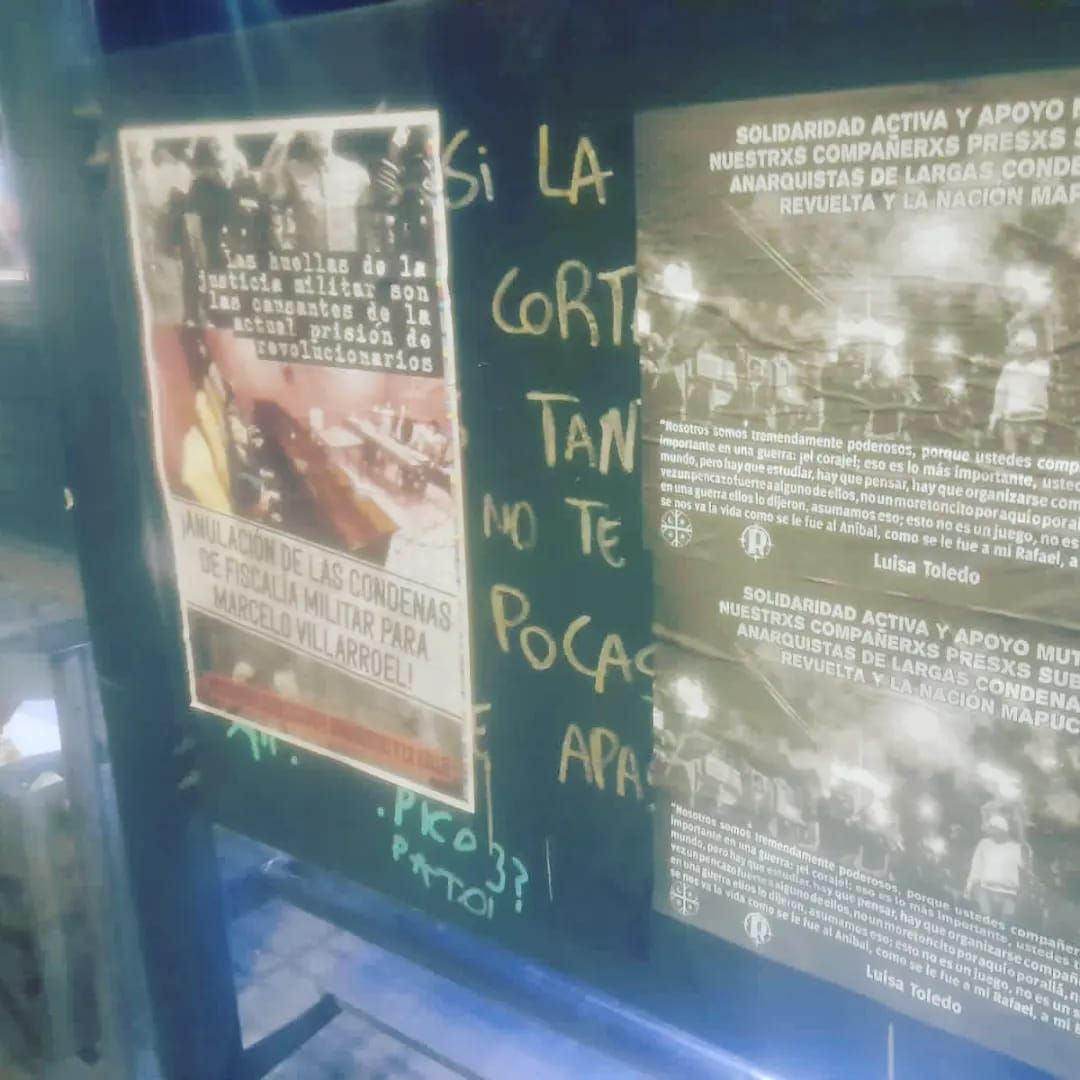 Las huellas de la
justicia militar son
las causantes de la
actual prisión de
revolucionarios
¡ANULACIÓN DE LAS CONDENAS
DE FISCALÍA MILITAR PARA
MARCELO VILLARROEL!
Si LA
CORTA
TAN
NO TE
POCAS
APA
.PICO
PATO
SOLIDARIDAD ACTIVA Y APOYO M
NUESTRXS COMPAÑERXS PRESXS S
ANARQUISTAS DE LARGAS CONDE
REVUELTA Y LA NACIÓN MAP
"Nosotros somos tremendamente poderosos, porque ustedes comp
importante en una guerra: ¡el coraje!; eso es lo más importante, usted
mundo, pero hay que estudiar, hay que pensar, hay que organizarse com
vez un pencazo fuerte a alguno de ellos, no un moretoncito por aquí o por al
en una guerra ellos lo dijeron, asumamos eso; esto no es un juego, no es
se nos va la vida como se le fue al Aníbal, como se le fue a mi Rafael, a
R
Luisa Toledo
SOLIDARIDAD ACTIVA Y APOYO MUT
NUESTRXS COMPAÑERXS PRESXS SUB
ANARQUISTAS DE LARGAS CONDENA
REVUELTA Y LA NACIÓN MAPUC
"Nosotros somos tremendamente poderosos, porque ustedes compañer
importante en una guerra: ¡el coraje!; eso es lo más importante, ustedes
mundo, pero hay que estudiar, hay que pensar, hay que organizarse compañ
vez un pencazo fuerte a alguno de ellos, no un moretoncito por aquí o por allá, n
en una guerra ellos lo dijeron, asumamos eso; esto no es un juego, no es un s
se nos va la vida como se le fue al Aníbal, como se le fue a mi Rafael, a mi
R
Luisa Toledo